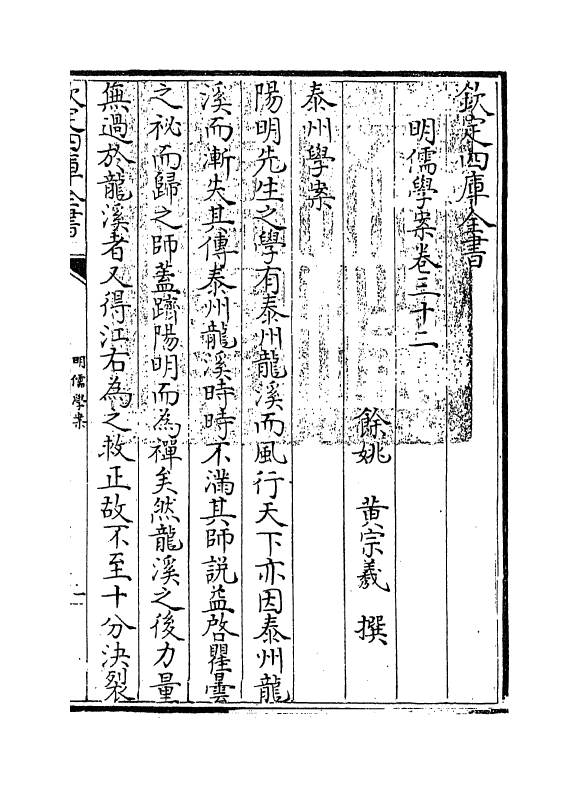 欽定四庫全書
明儒學案卷三十二
餘姚 黃宗羲 撰
泰州學案
陽明先生之學有泰州龍溪而風行天下亦因泰州龍
溪而漸失其傳泰州龍溪時時不滿其師說益啓瞿曇
之祕而歸之師蓋躋陽明而為禪矣然龍溪之後力量
無過於龍溪者又得江右為之救正故不至十分決裂
欽定四庫全書
明儒學案